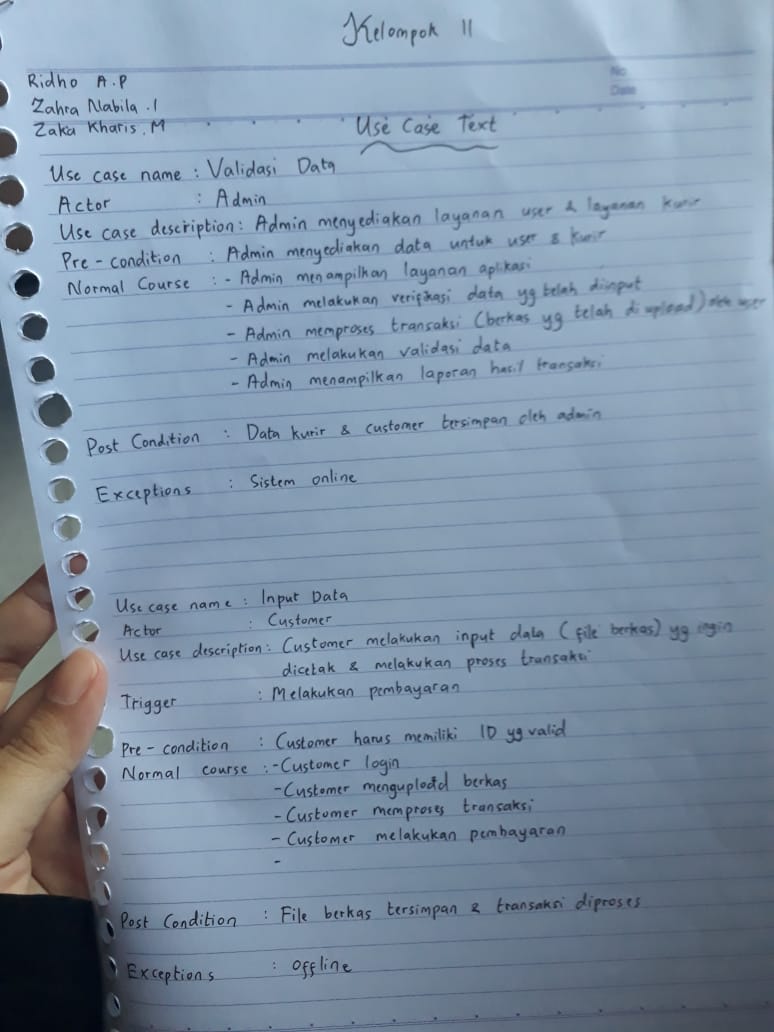 Kelompok 11
No
Date
Ridho A.P
Zahra Nabila .I
Zaka Kharis .M
Use Case Text
Use case name : Validasi Data
Actor : Admin
Use case description : Admin menyediakan layanan user & layanan kurir
Pre - condition : Admin menyediakan data untuk user & kurir
Normal Course : - Admin menampilkan layanan aplikasi
- Admin melakukan verifikasi data yg telah diinput
- Admin memproses transaksi (berkas yg telah di upload) oleh user
- Admin melakukan validasi data
- Admin menampilkan laporan hasil transaksi
Post Condition : Data kurir & customer tersimpan oleh admin
Exceptions : Sistem online
Use case name : Input Data
Actor : Customer
Use case description : Customer melakukan input data (file berkas) yg ingin
dicetak & melakukan proses transaksi
Trigger : Melakukan pembayaran
Pre - condition : Customer harus memiliki ID yg valid
Normal course : - Customer login
- Customer mengupload berkas
- Customer memproses transaksi
- Customer melakukan pembayaran
-
Post Condition : File berkas tersimpan & transaksi diproses
Exceptions : Offline